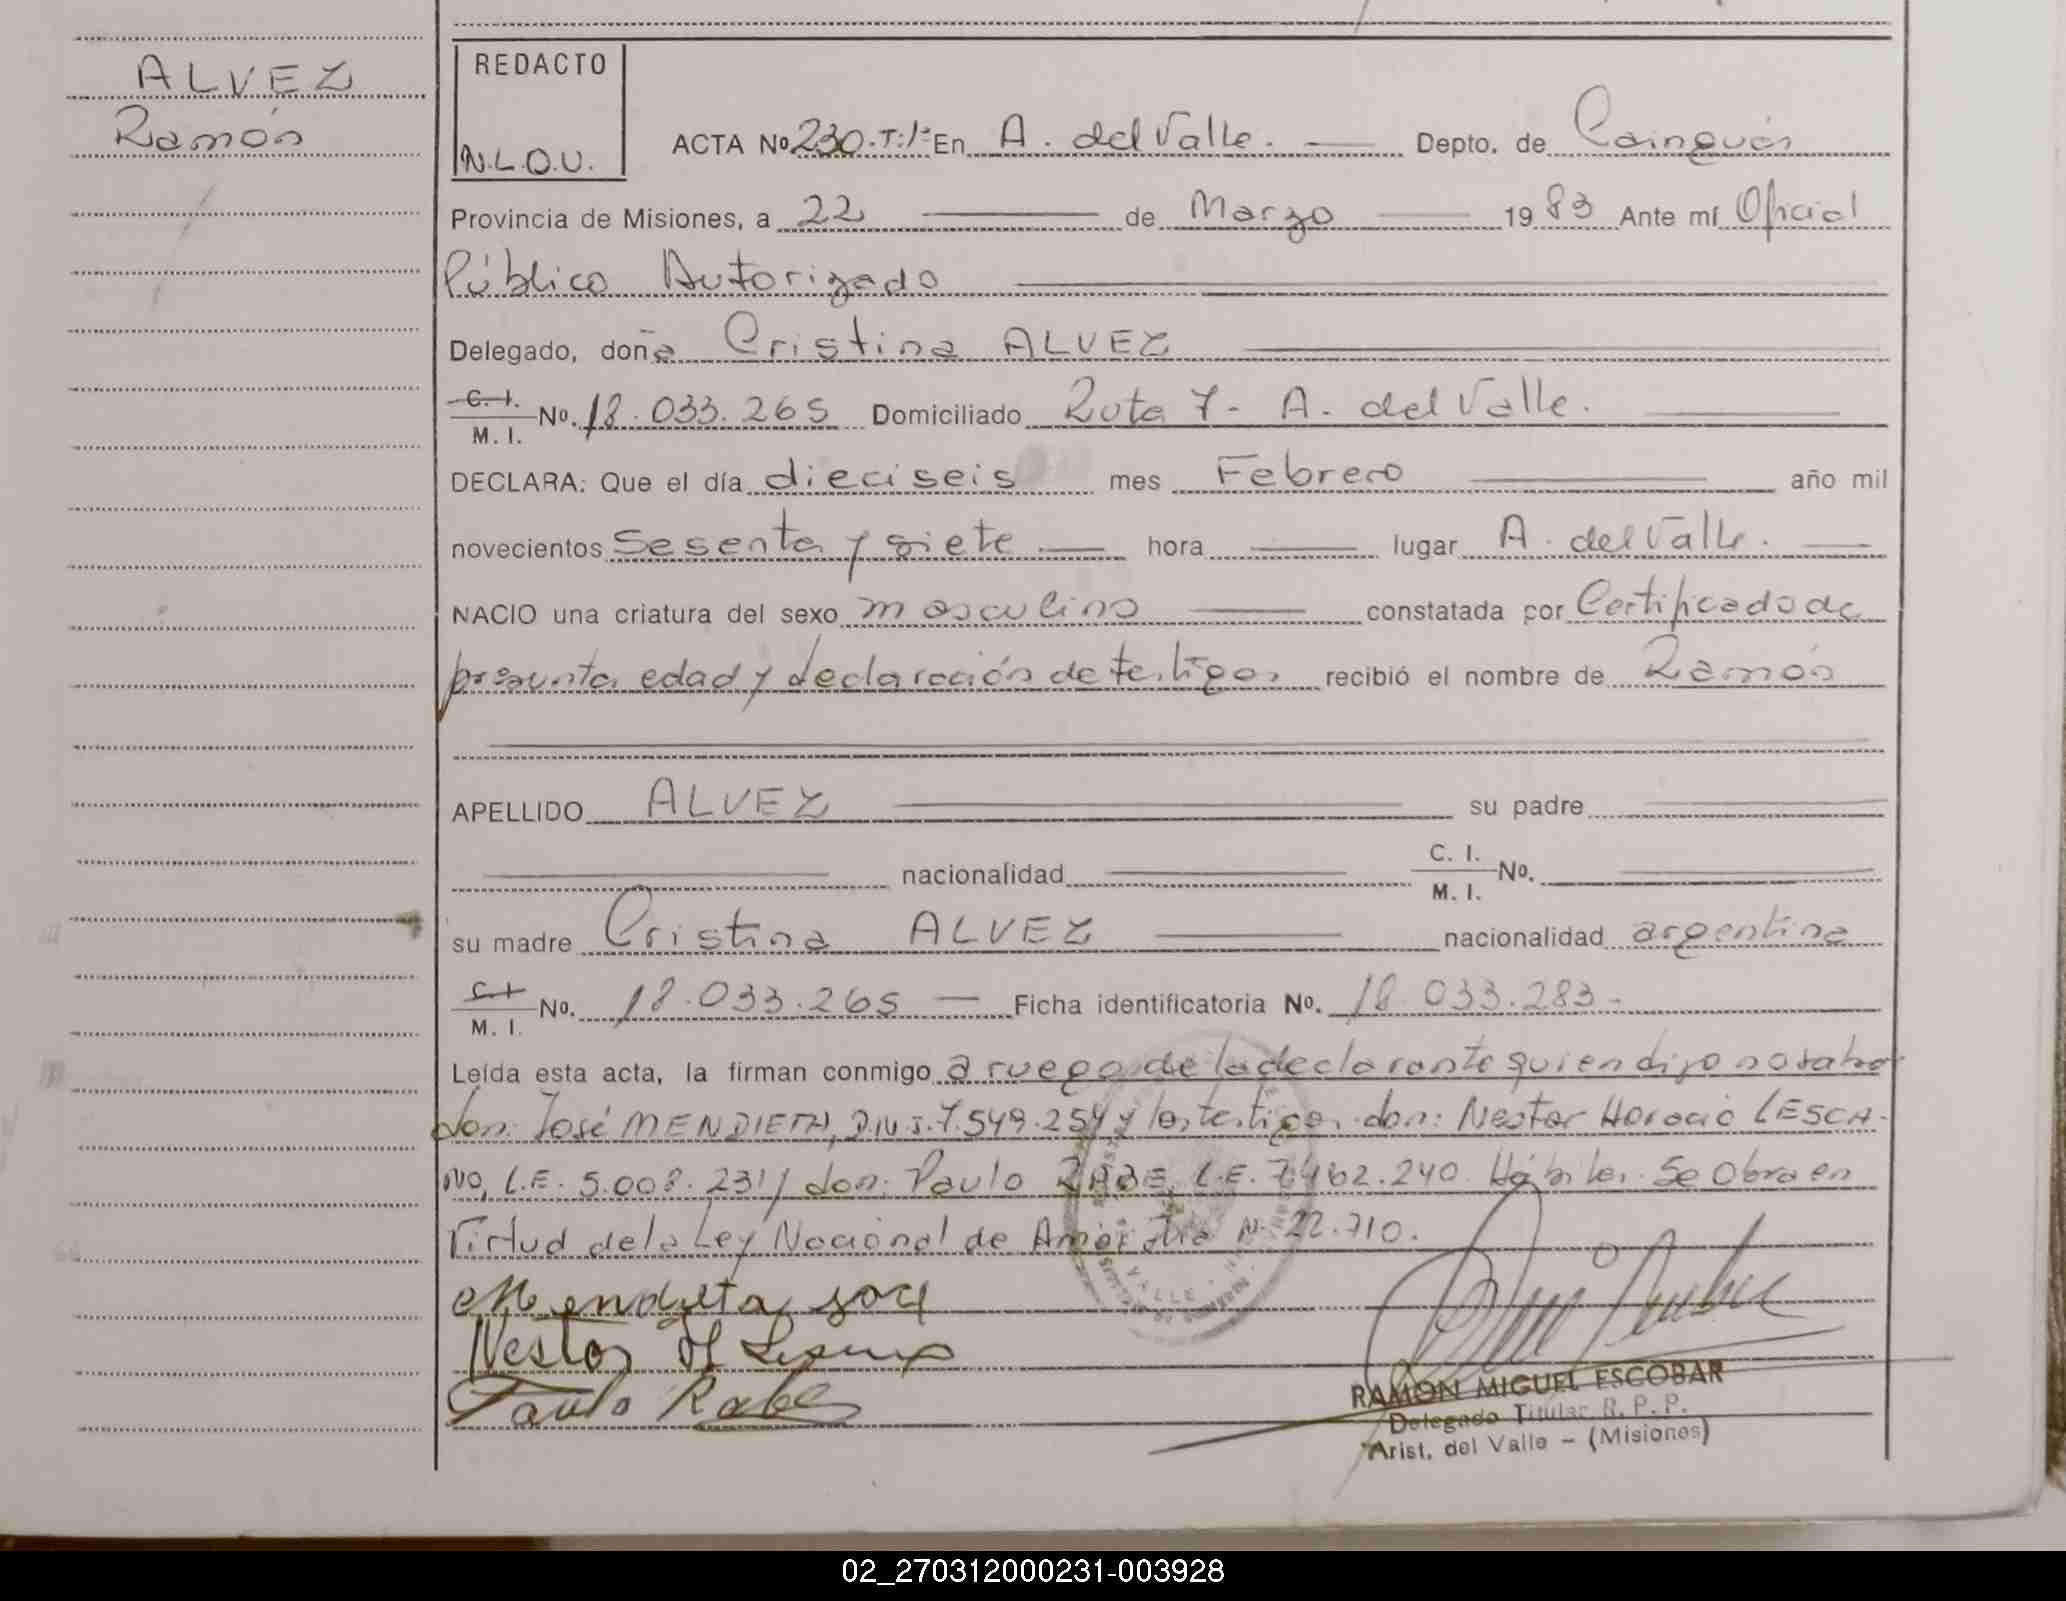 ALVEZ
Ramón
REDACTO
N.L.O.U.
ACTA Nº 230.T:1º En A. del Valle. Depto. de Cainguás
Provincia de Misiones, a 22 de Marzo 1983 Ante mí Oficial
Público Autorizado
Delegado, doña Cristina ALVEZ
C. I. / M. I. No. 18.033.265 Domiciliado Ruta 7- A. del Valle.
DECLARA: Que el día dieciseis mes Febrero año mil
novecientos Sesenta y siete hora lugar A. del Valle.
NACIO una criatura del sexo masculino constatada por Certificado de
presunta edad y declaración de testigos recibió el nombre de Ramón
APELLIDO ALVEZ su padre
nacionalidad C. I. / M. I. No.
su madre Cristina ALVEZ nacionalidad argentina
C. I. / M. I. No. 18.033.265 Ficha identificatoria No. 18.033.283-
Leída esta acta, la firman conmigo a ruego de la declarante quien dijo no saber
don: José MENDIETA, D.N.I. 7.549.254 y los testigos don: Nestor Horacio LESCA-
NO, L.E. 5.008.231 y don: Paulo RABE, L.E. 7.462.240. Hábiles. Se Obra en
Virtud de la Ley Nacional de Amnistia Nº 22.710.
Mendieta José
Nestor H
Paulo Rabe
RAMON MIGUEL ESCOBAR
Delegado Titular R. P. P.
Arist. del Valle - (Misiones)
02_270312000231-003928